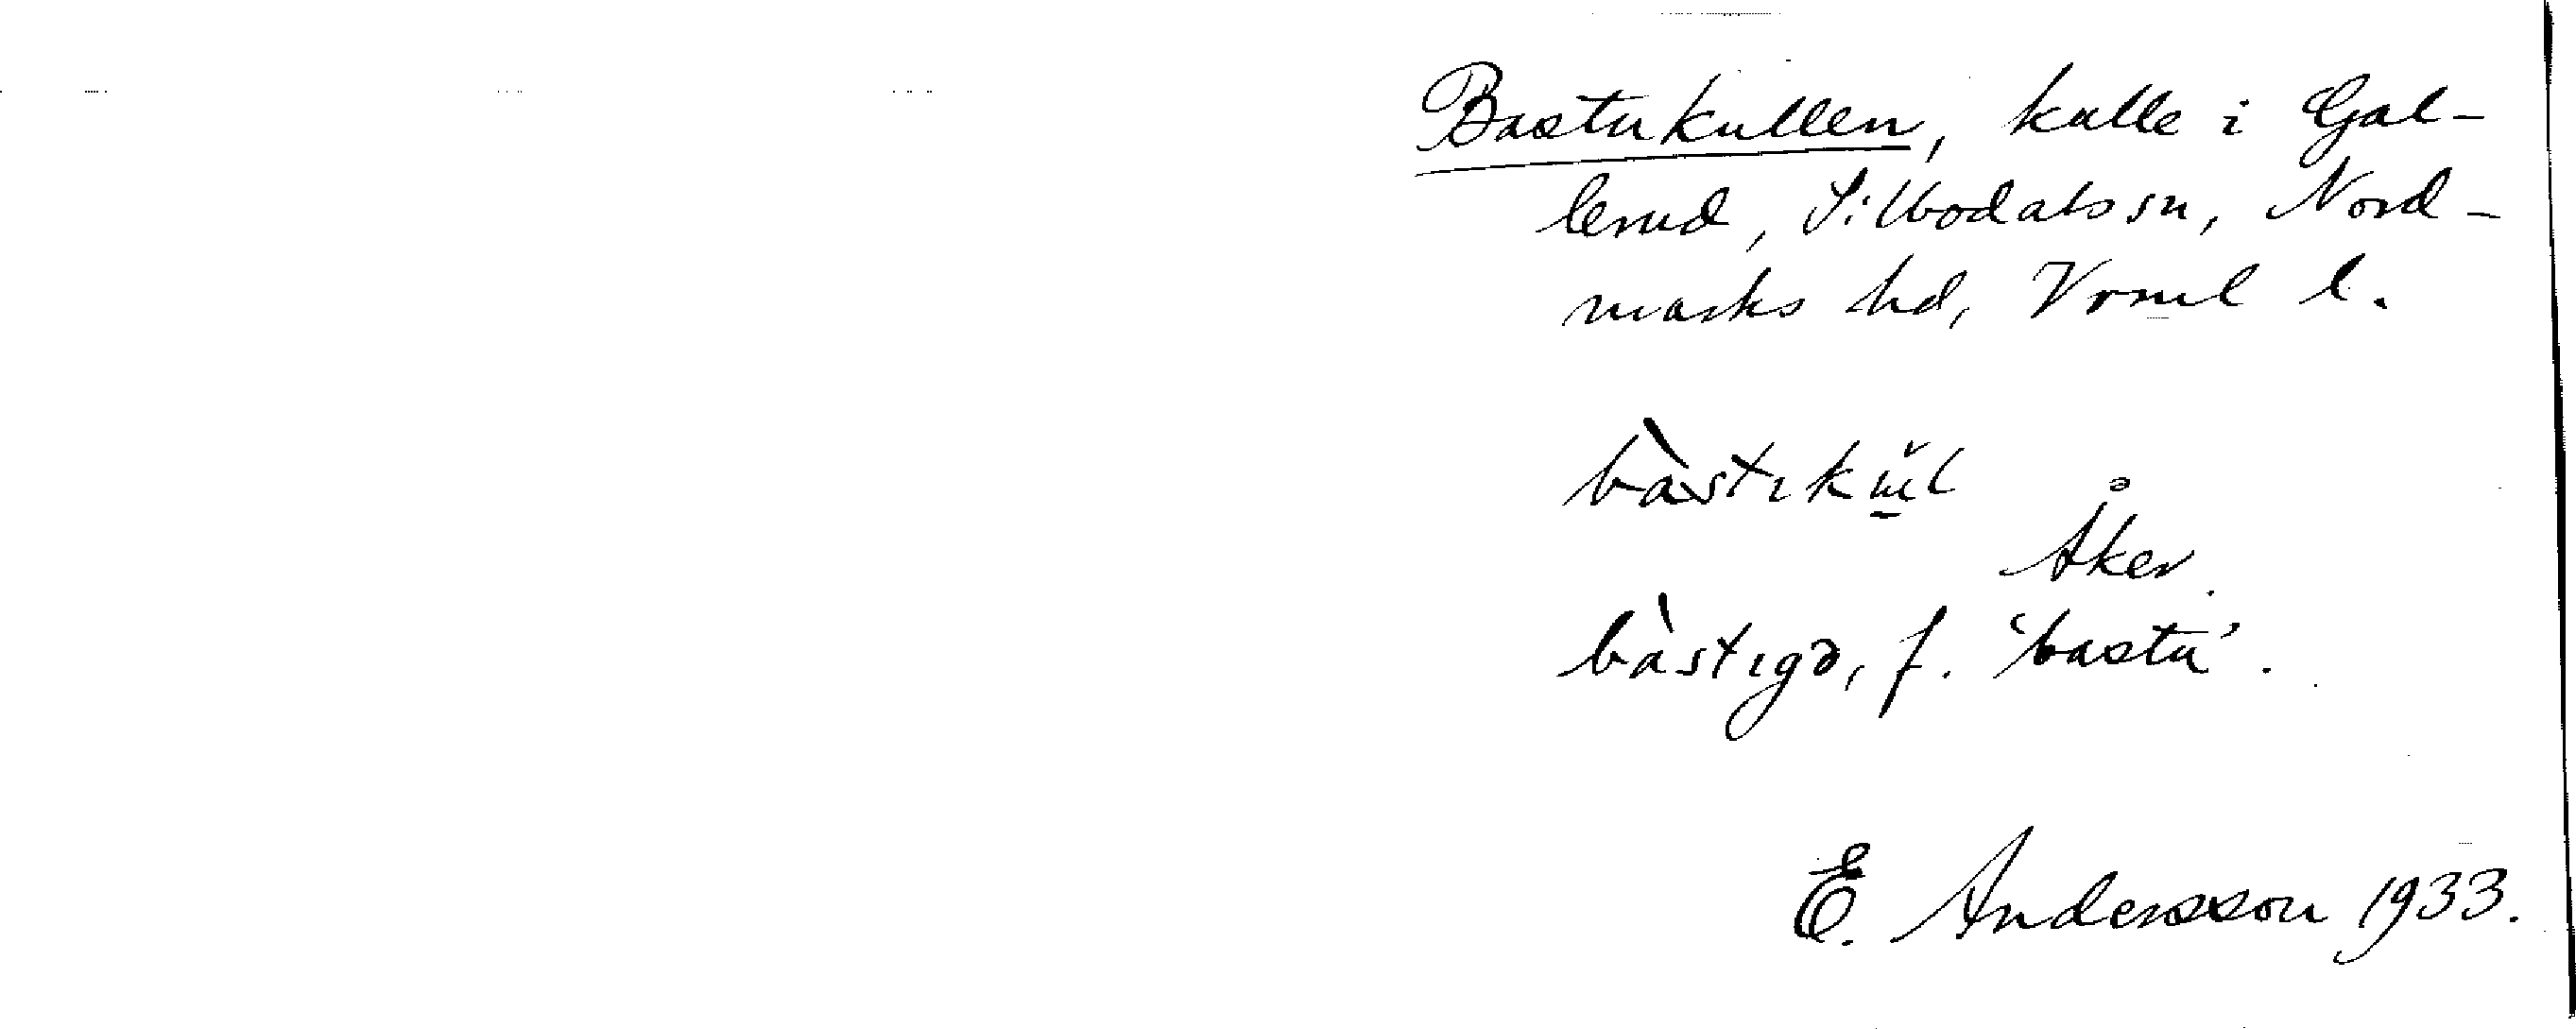 Bastukullen, kulle i Gal-
lerud, Sillbodals sn, Nord-
marks hd, Vrml l.
bàstɩkŭl
Åker.
bàstɩgə, f. 'bastu'.
E. Andersson 1933.